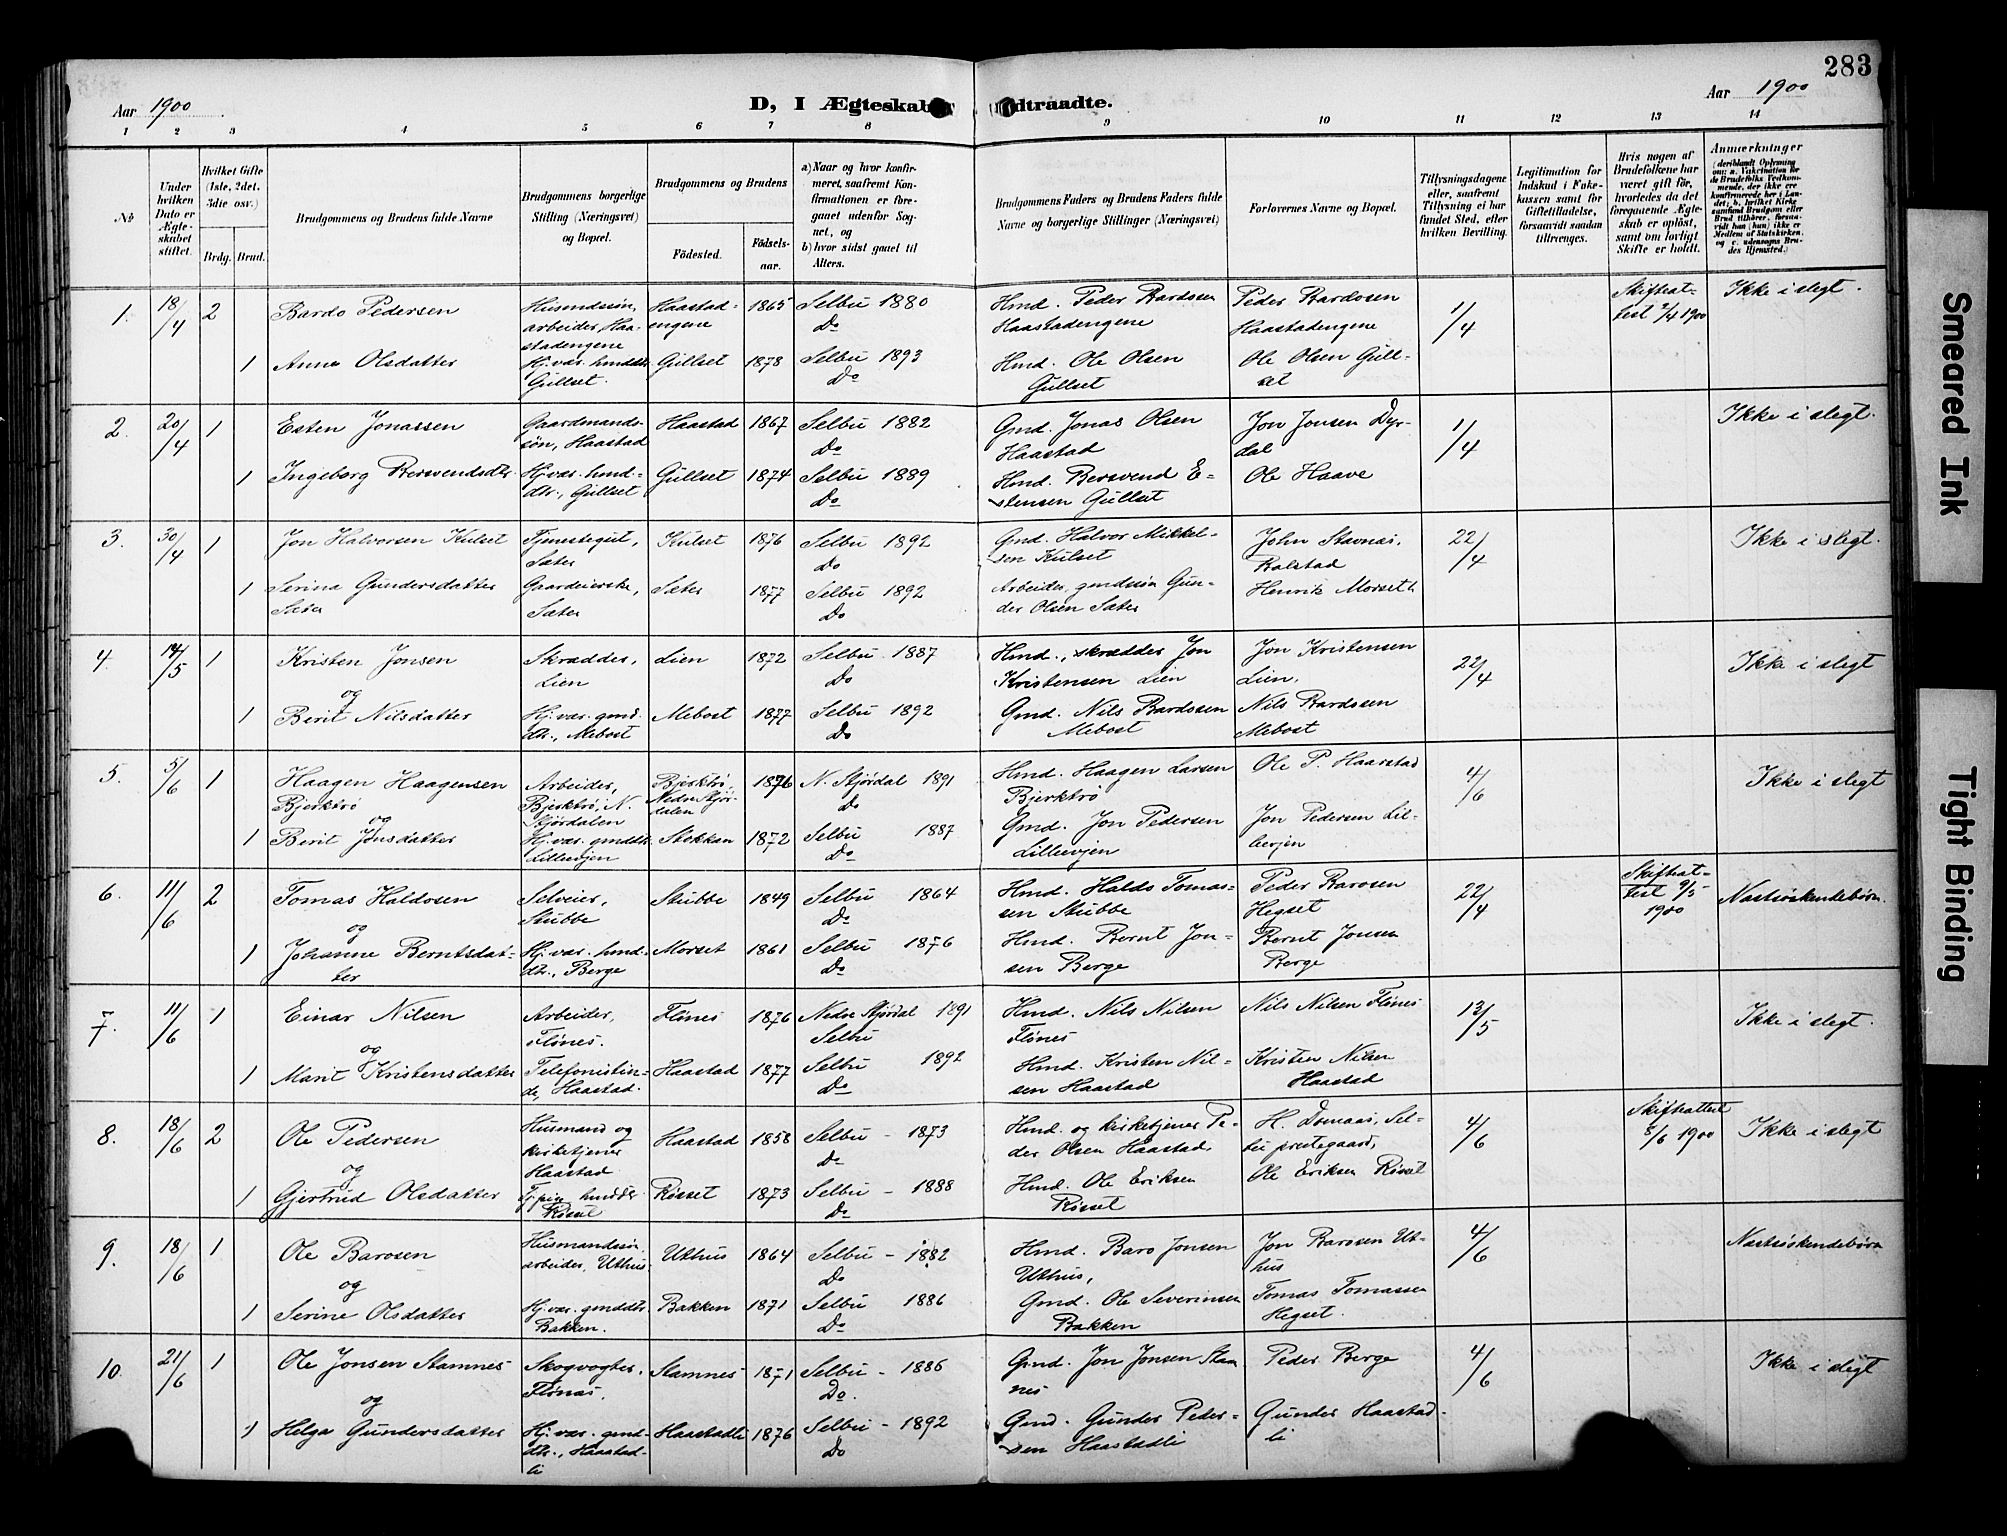 283
Aar 1900
D, I Ægteskab
dtraadte.
Aar 1900
1 2 3 4 5 6 7 8 9 10 11 12 13 14
No
Under hvilken Dato er Ægteskabet stiftet.
Hvilket Gifte (1ste, 2det, 3die osv.)
Brdg. Brud.
Brudgommens og Brudens fulde Navne
Brudgommens borgerlige Stilling (Næringsvei) og Bopæl.
Brudgommens og Brudens
Fødested.
Fødsels-aar.
a) Naar og hvor konfirmeret, saafremt Konfirmationen er foregaaet udenfor Sognet, og
b) hvor sidst gaaet til Alters.
Brudgommens Faders og Brudens Faders fulde Navne og borgerlige Stillinger (Næringsvei)
Forlovernes Navne og Bopæl.
Tillysningsdagene eller, saafremt Tillysning ei har fundet Sted, efter hvilken Bevilling.
Legitimation for Indskud i Enkekassen samt for Giftetilladelse, forsaavidt saadan tiltrænges.
Hvis nogen af Brudefolkene har været gift før, hvorledes da det foregaaende Ægteskab er opløst, samt om lovligt Skifte er holdt.
Anmerkninger
1. 18/4 2 Bardo Pedersen Husmandssøn, arbeider, Haastadengene Haastadengene 1865 Selbu 1880 Do Hmd. Peder Bardosen Haastadengene Peder Bardosen Haastadengene 1/4 Skifteattest 7/4 1900 Ikke i slegt.
1 Anne Olsdatter Hj. vær. hmddtr. Gullset. Gullset 1878 Selbu 1893 Do Hmd. Ole Olsen Gullset Ole Olsen Gullset
2. 20/4 1 Esten Jonassen Gaardmandssøn, Haastad Haastad 1867 Selbu 1882 Do Gmd. Jonas Olsen Haastad Jon Jonsen Dyrdal 1/4 Ikke i slegt.
1 Ingeborg Bersvendsdtr. Hj. vær. hmd.dtr., Gullset Gullset 1874 Selbu 1889 Do Hmd. Bersvend Estensen Gullset Ole Haave
3. 30/4 1 Jon Halvorsen Kulset Tjenestegut, Sæter Kulset 1876 Selbu 1892 Do Gmd. Halvor Mikkelsen Kulset John Stavnas, Rolstad 22/4 Ikke i slegt.
1 Serina Gundersdatter Sæter Gaardeierske, Sæter Sæter 1877 Selbu 1892 Do Arbeider, gmdssøn Gunder Olsen Sæter Henrik Morseth
4. 14/5 1 Kristen Jonsen Skrædder, Lien Lien 1872 Selbu 1887 Do Hmd., skrædder Jon Kristensen Lien Jon Kristensen Lien, 22/4 Ikke i slegt
og
1 Berit Nilsdatter Hj. vær. gmd.dtr., Mebost Mebost 1877 Selbu 1892 Do Gmd. Nils Bardosen Mebost Nils Bardosen Mebost
5. 5/6 1 Haagen Haagensen Bjerktrø Arbeider, Bjerktrø, N. Stjørdalen Bjerktrø, Nedre Stjørdalen 1876 N. Stjørdal 1891 Do Hmd. Haagen Larsen Bjerktrø Ole P. Haarstad 4/6 Ikke i slegt
og
1 Berit Jonsdatter Hj. vær. gmddtr. Lilleevjen Stokkan 1872 Selbu 1887 Do Gmd. Jon Pedersen Lilleevjen Jon Pedersen Lilleevjen
6. 11/6 2 Tomas Haldosen Selveier, Stubbe Stubbe 1849 Selbu 1864 Do Hmd. Haldo Tomassen Stubbe Peder Barosen Hegset 22/4 Skifteattest 9/5 1900 Næstsøskendebørn.
og
1 Johanne Berntsdatter Hj. vær. hmd.dtr., Berge Morset 1861 Selbu 1876 Do Hmd. Bernt Jonsen Berge Bernt Jonsen Berge
7. 11/6 1 Einar Nilsen Arbeider, Flønes. Flønes 1876 Nedre Stjørdal 1891 Selbu Hmd. Nils Nilsen Flønes Nils Nilsen Flønes 13/5 Ikke i slegt.
og
1 Marit Kristensdatter Telefonistinde, Haastad. Haastad 1877 Selbu 1892 Do Hmd. Kristen Nilsen Haastad Kristen Nilsen Haastad
8. 18/6 2 Ole Pedersen Husmand og kirketjener Haastad Haastad 1858 Selbu - 1873 Do Hmd. og kirketjener Peder Olsen Haastad, H. Domaas, Selbu prestegaard, 4/6 Skifteattest 8/6 1900 Ikke i slegt
og
1 Gjertrud Olsdatter Tj. pige hmddtr. Røset Røset 1873 Selbu - 1888 Do Hmd. Ole Eriksen Røset Ole Eriksen Røset
9. 18/6 1 Ole Barosen Husmandssøn, arbeider, Uthus. Uthus 1864 Selbu - 1882 Do Hmd. Baro Jonsen Uthus, Jon Barosen Uthus 4/6 Næstsøskendebørn
og
1 Serine Olsdatter Hj. vær. gmddtr. Bakken. Bakken 1871 Selbu 1886 Do Gmd. Ole Severinsen Bakken Tomas Tomassen Hegset.
10. 21/6 1 Ole Jonsen Stamnes Skogvogter, Flønas. Stamnes 1871 Selbu - 1886 Do. Gmd. Jon Jonsen Stamnes Peder Berge 4/6 Ikke i slegt
og
1 Helga Gundersdatter Hj. vær. gmd.dtr., Haastadli Haastadli 1876 Selbu - 1892 Do Gmd. Gunder Pedersen Haastadli Gunder Haastadli
Smeared Ink
Tight Binding